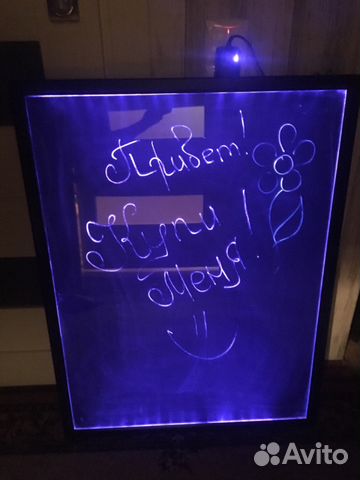 Привет!
Купи
Меня!
Avito